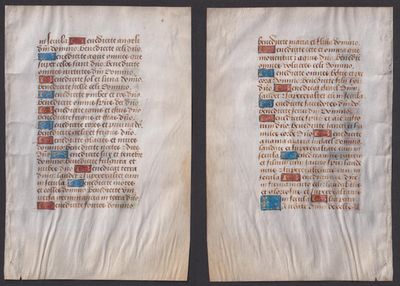 in secula Benedicite angeli
dñi domino benedicite celi dño
Benedicite aque omnes que
super celos sunt dño benedicite
omnes virtutes dñi Domino
Benedicite sol et luna domino
benedicite stelle celi Domino
Benedicite imber et ros dño
benedicite omnis spiritus dei dño
Benedicite ignis et estus dño
Benedicite
Benedicite glacies et nives
domino benedicite noctes et dies
dño Benedicite lux et tenebre
domino benedicite fulgura et
nubes dño Benedicat terra
dñm laudet et superexaltet eum
in secula Benedicite montes
et colles domino benedicite uni
versa germinancia in terra dño
Benedicite fontes domino
benedicite maria et flumina domino
Benedicite cete et omnia que
moventur in aquis dño benedicite
omnes volucres celi domino
Benedicite omnes bestie et pe
cora dño benedicite filii hominum
dño Benedicat israel dñm
laudet et superexaltet eum in secula
Benedicite sacerdotes dñi do
mino benedicite servi dñi domino
Benedicite spiritus et anime iustorum
dño benedicite sancti et hu
miles corde dño Benedicite
anania azaria misael domino
laudate et superexaltate eum in
secula Benedicamus patrem
et filium cum sancto spiritu
laudemus et superexaltemus eum in
secula Benedictus es dñe
in firmamento celi et laudabilis
et gloriosus et superexaltatus
in secula
Laudate dñm de celis